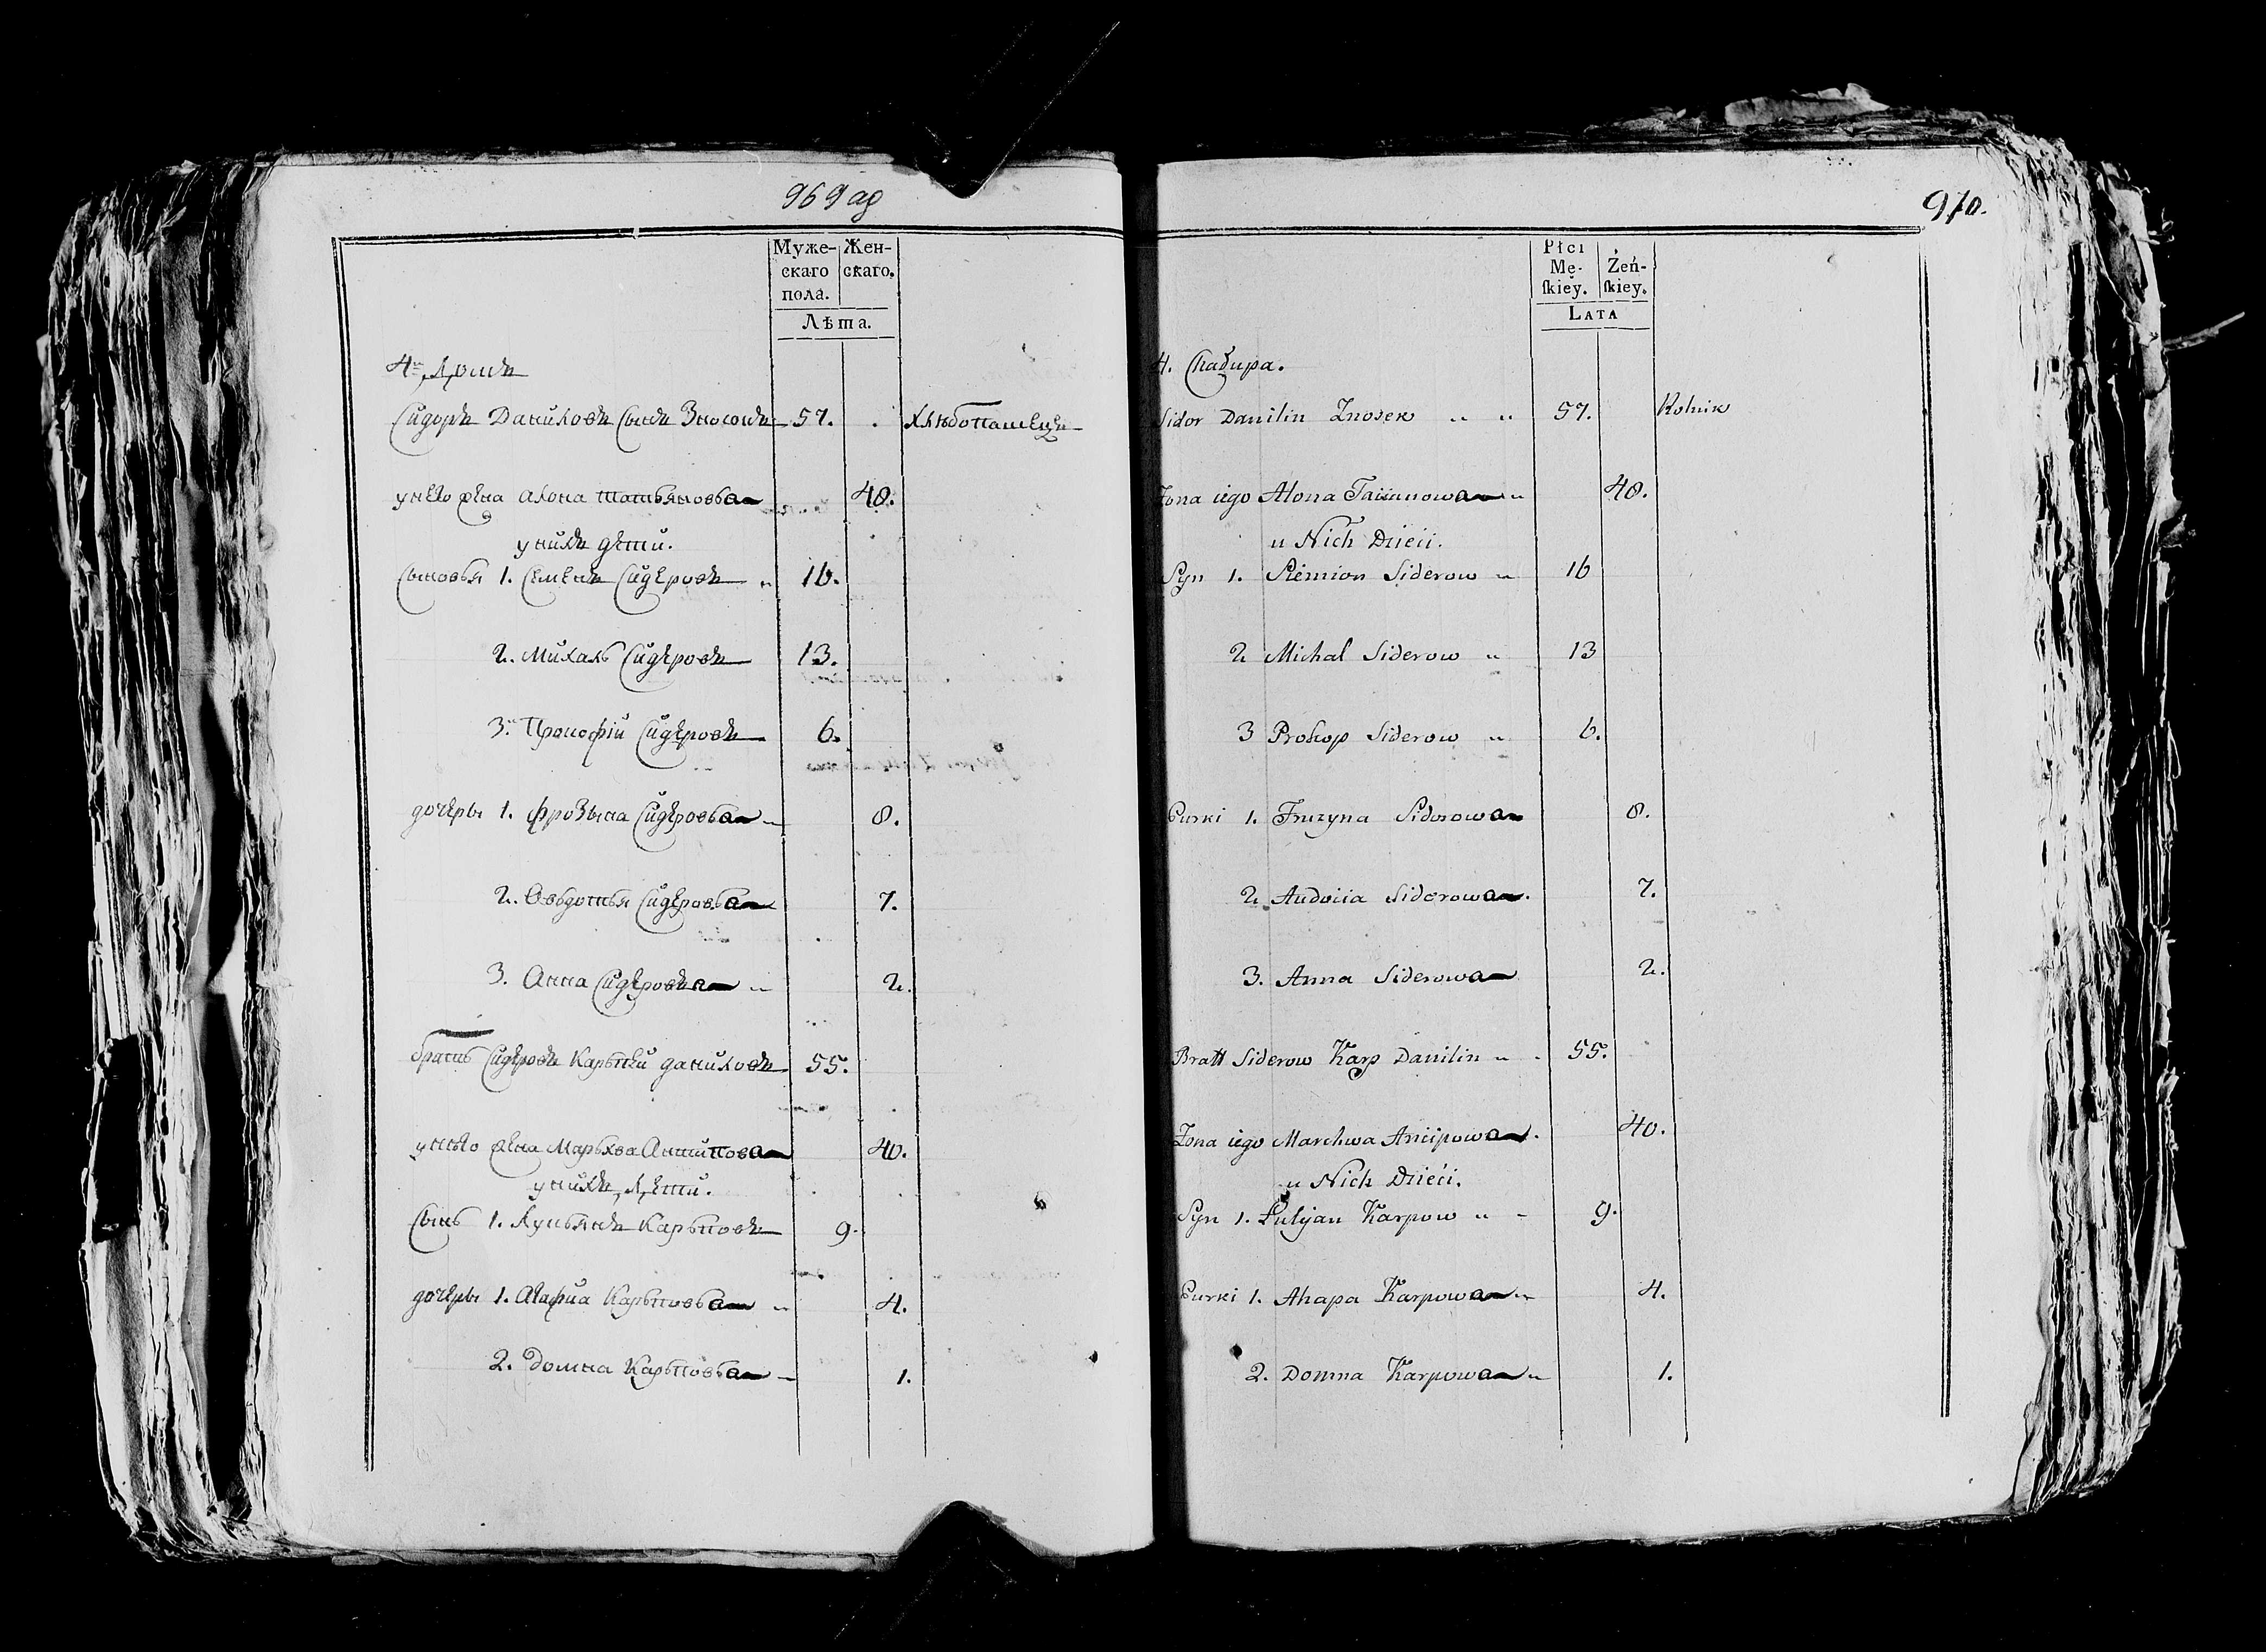 969 об
Муже- Жен-
скаго скаго.
пола.
Лѣта.
4й Домъ
Сидоръ Даниловъ Сынъ Зносокъ 57. Хлѣбопашецъ
у него жена Алона татьяновва 48.
у нихъ дети.
Сыновья 1. Семенъ Сидеровъ 16.
2. Михаль Сидеровъ 13.
3й Прокофій Сидеровъ 6.
дочеры 1. Фрозына Сидеровьа 8.
2. Овьдотья Сидеровьа 7.
3. Анна Сидеровъа 2.
братъ Сидеровъ Карьпей даниловъ 55.
у нѣго жена Марьхва Антипова 40.
у нихъ Дети.
Сынъ 1. Лукьянъ Карьповъ 9.
дочеры 1. Агафиа Карьповьа 4.
2. Домна Карьповьа 1.
970.
Płci
Mę- Żeń-
ſkiey. ſkiey.
LATA
4. Chałupa.
Sidor Danilin Znosek 57. Rolnik
Żona iego Alona Taciianowa 48.
u Nich Dzieci.
Syn 1. Siemion Siderow 16
2 Michal Siderow 13
3 Prokop Siderow 6.
Curki 1. Fruzyna Sidorowa 8.
2 Audocia Siderowa. 7.
3. Anna Siderowa 2.
Bratt Siderow Karp Danilin 55.
Żona iego Marchwa Ancipowa. 40.
u Nich Dzieci.
Syn 1. Łukjan Karpow 9.
Curki 1. Ahapa Karpowa 4.
2. Domna Karpowa 1.